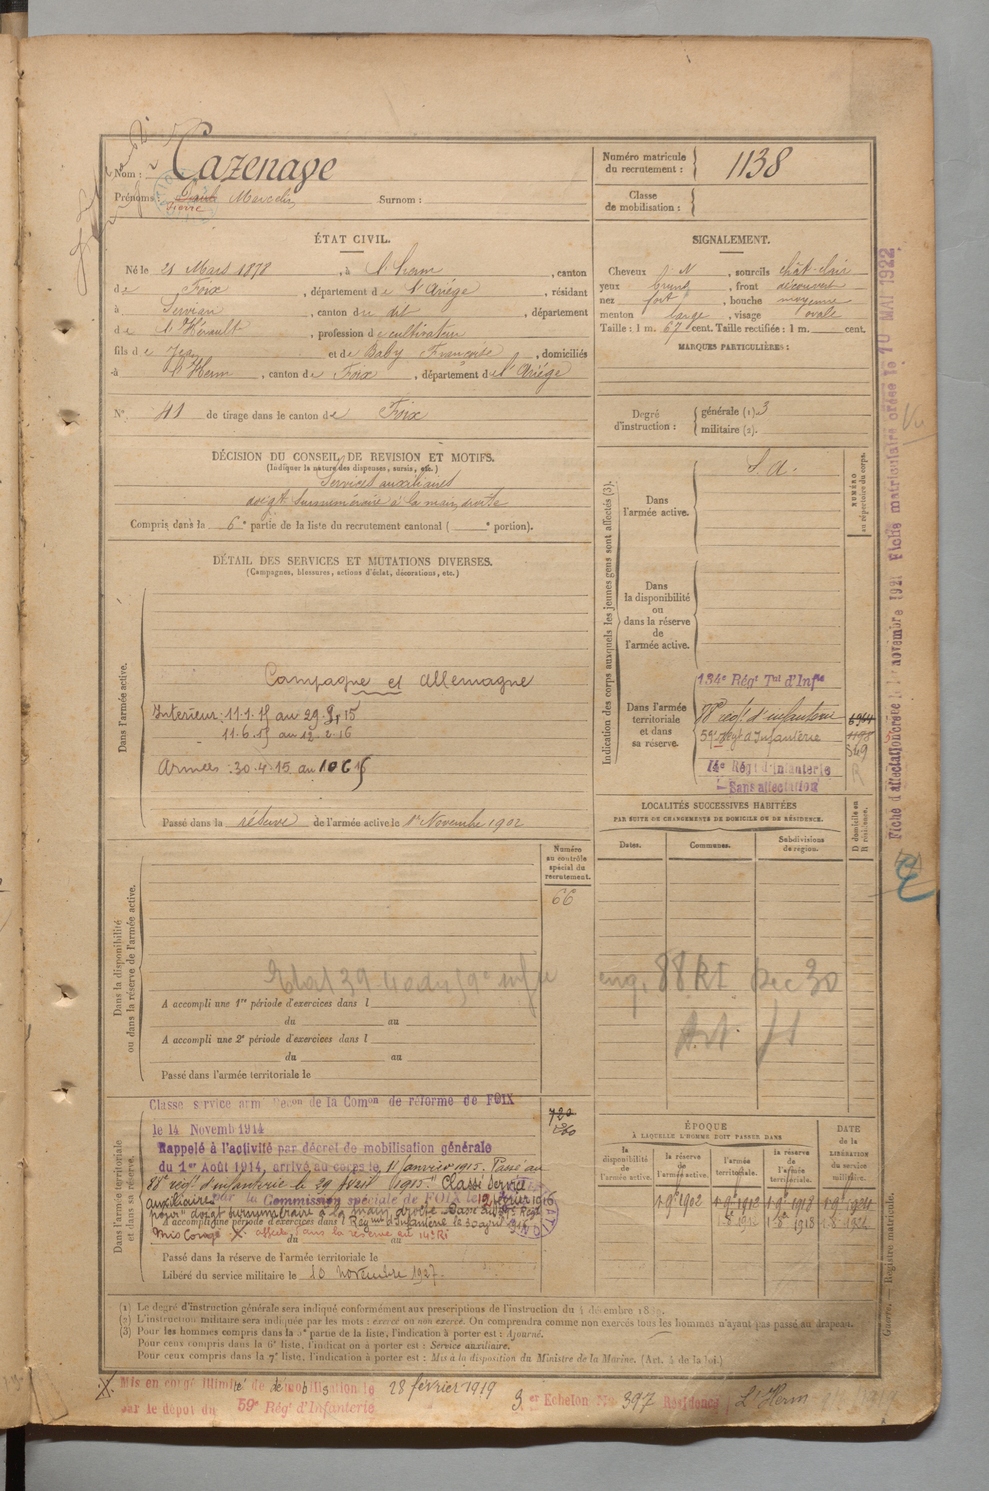 Nom : Cazenave
Prénoms : Pierre Marcelin Surnom :
Numéro matricule du recrutement : 1138
Classe de mobilisation :
ÉTAT CIVIL.
Né le 21 Mars 1878, à l'Herm, canton
de Foix, département de l'Ariège, résidant
à Servian, canton du dit, département
de l'Hérault, profession de cultivateur
fils de Jean et de Baby Françoise, domiciliés
à l'Herm, canton de Foix, département de l'Ariège
N° 41 de tirage dans le canton de Foix
SIGNALEMENT.
Cheveux N, sourcils chât-clair
yeux bruns, front découvert
nez fort, bouche moyenne
menton large, visage ovale
Taille : 1 m. 67 cent. Taille rectifiée : 1 m. cent.
MARQUES PARTICULIÈRES :
Degré d'instruction : générale (1). 3
militaire (2).
DÉCISION DU CONSEIL DE REVISION ET MOTIFS.
(Indiquer la nature des dispenses, sursis, etc.)
Services auxiliaires
doigt surnuméraire à la main droite
Compris dans la 6e partie de la liste du recrutement cantonal ( e portion).
DÉTAIL DES SERVICES ET MUTATIONS DIVERSES.
(Campagnes, blessures, actions d'éclat, décorations, etc.)
Dans l'armée active.
Campagne et Allemagne
Intérieur : 11.1.15 au 29.4.15
11.6.15 au 12.2.16
Armées : 30.4.15 au 10 6 15
Passé dans la réserve de l'armée active le 1er Novembre 1902
Indication des corps auxquels les jeunes gens sont affectés (3).
NUMÉRO au répertoire du corps.
Dans l'armée active.
S. A.
Dans la disponibilité ou dans la réserve de l'armée active.
Dans l'armée territoriale et dans sa réserve.
134e Régt Tal d'Infie
88e régt d'infanterie
59e Régt d'Infanterie
14e Régt d'infanterie
Sans affectation
1198
349
R
LOCALITÉS SUCCESSIVES HABITÉES
PAR SUITE DE CHANGEMENTS DE DOMICILE OU DE RÉSIDENCE.
Dates. Communes. Subdivisions de région. D domicile ou R résidence.
Dans la disponibilité ou dans la réserve de l'armée active.
Numéro au contrôle spécial du recrutement.
66
A accompli une 1re période d'exercices dans l
du au
A accompli une 2e période d'exercices dans l
du au
Passé dans l'armée territoriale le
88 RI Dec 30
Art
Dans l'armée territoriale et dans sa réserve.
Classe service armé Décon de la Comon de réforme de FOIX
le 14 Novemb 1914
Rappelé à l'activité par décret de mobilisation générale
du 1er Août 1914, arrivé au corps le 11 janvier 1915. Passé au
88e régt d'infanterie le 29 Avril 1915. Classé Service
auxiliaire par la Commission spéciale de FOIX le 12 février 1916
pour "doigt surnuméraire à la main droite". Passé au 59e Régt
A accompli une période d'exercices dans l Régiment d'Infanterie le 30
Mis Congé X. affecté dans la réserve au 14e RI
du au
Passé dans la réserve de l'armée territoriale le
Libéré du service militaire le 10 novembre 1927.
720
ÉPOQUE
À LAQUELLE L'HOMME DOIT PASSER DANS
la disponibilité de l'armée active. la réserve de l'armée active. l'armée territoriale. la réserve de l'armée territoriale. DATE de la LIBÉRATION du service militaire.
1-9e 1902 1-9e 1912 1-9e 1918 1-9e 1924
1-8e 1912 1-8e 1918 1-8e 1924
(1) Le degré d'instruction générale sera indiqué conformément aux prescriptions de l'instruction du 4 décembre 1889.
(2) L'instruction militaire sera indiquée par les mots : exercé ou non exercé. On comprendra comme non exercés tous les hommes n'ayant pas passé au drapeau.
(3) Pour les hommes compris dans la 5e partie de la liste, l'indication à porter est : Ajourné.
Pour ceux compris dans la 6e liste, l'indication à porter est : Service auxiliaire.
Pour ceux compris dans la 7e liste, l'indication à porter est : Mis à la disposition du Ministre de la Marine. (Art. 4 de la loi.)
X. Mis en congé illimité de démobilisation le 28 février 1919 3er Echelon No 397 Résidence L'Herm
par le dépôt du 59e Régt d'Infanterie
Fiche d'affectation créée le 1er novembre 1921 Fiche matriculaire créée le 10 MAI 1922
Guerre. — Registre matricule.